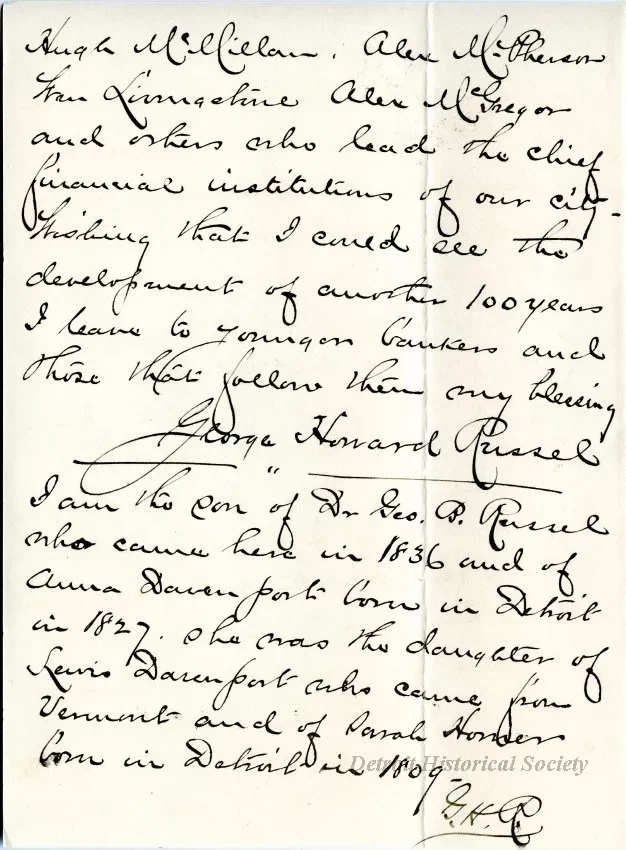 Hugh McMillan. Alex McPherson
Wm Livingstone Alex McGregor
and others who lead the chief
financial institutions of our city-
Wishing that I could see the
development of another 100 years
I leave to younger bankers and
those that follow them my blessing
George Howard Russel
"
I am the son of Dr Geo. B. Russel
who came here in 1836 and of
Anna Davenport born in Detroit
in 1827. She was the daughter of
Lewis Davenport who came from
Vermont and of Sarah
born in Detroit in 1809-
Detroit Historical Society
G. H. R.